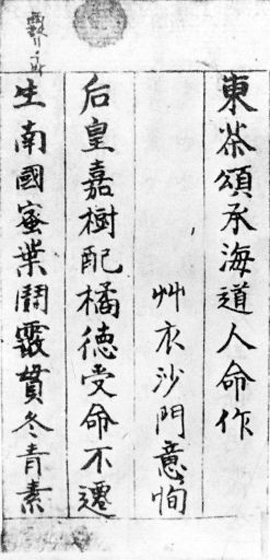 東茶頌承海道人命作
艸衣沙門意恂
后皇嘉樹配橘徳受命不遷
生南國蜜葉鬪霰貫冬青素